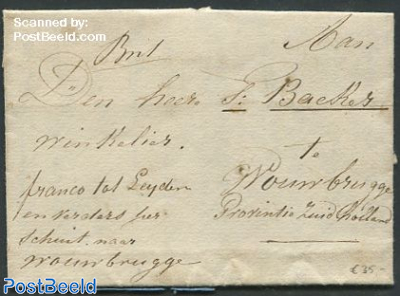 Scanned by:
PostBeeld.com
Aan
Den heer F: Backer
winkelier.
te
Woubrugge
Provintie Zuid Holland
franco tot Leyden
en verders per
schuit naar
Woubrugge
€35-
PostBeeld